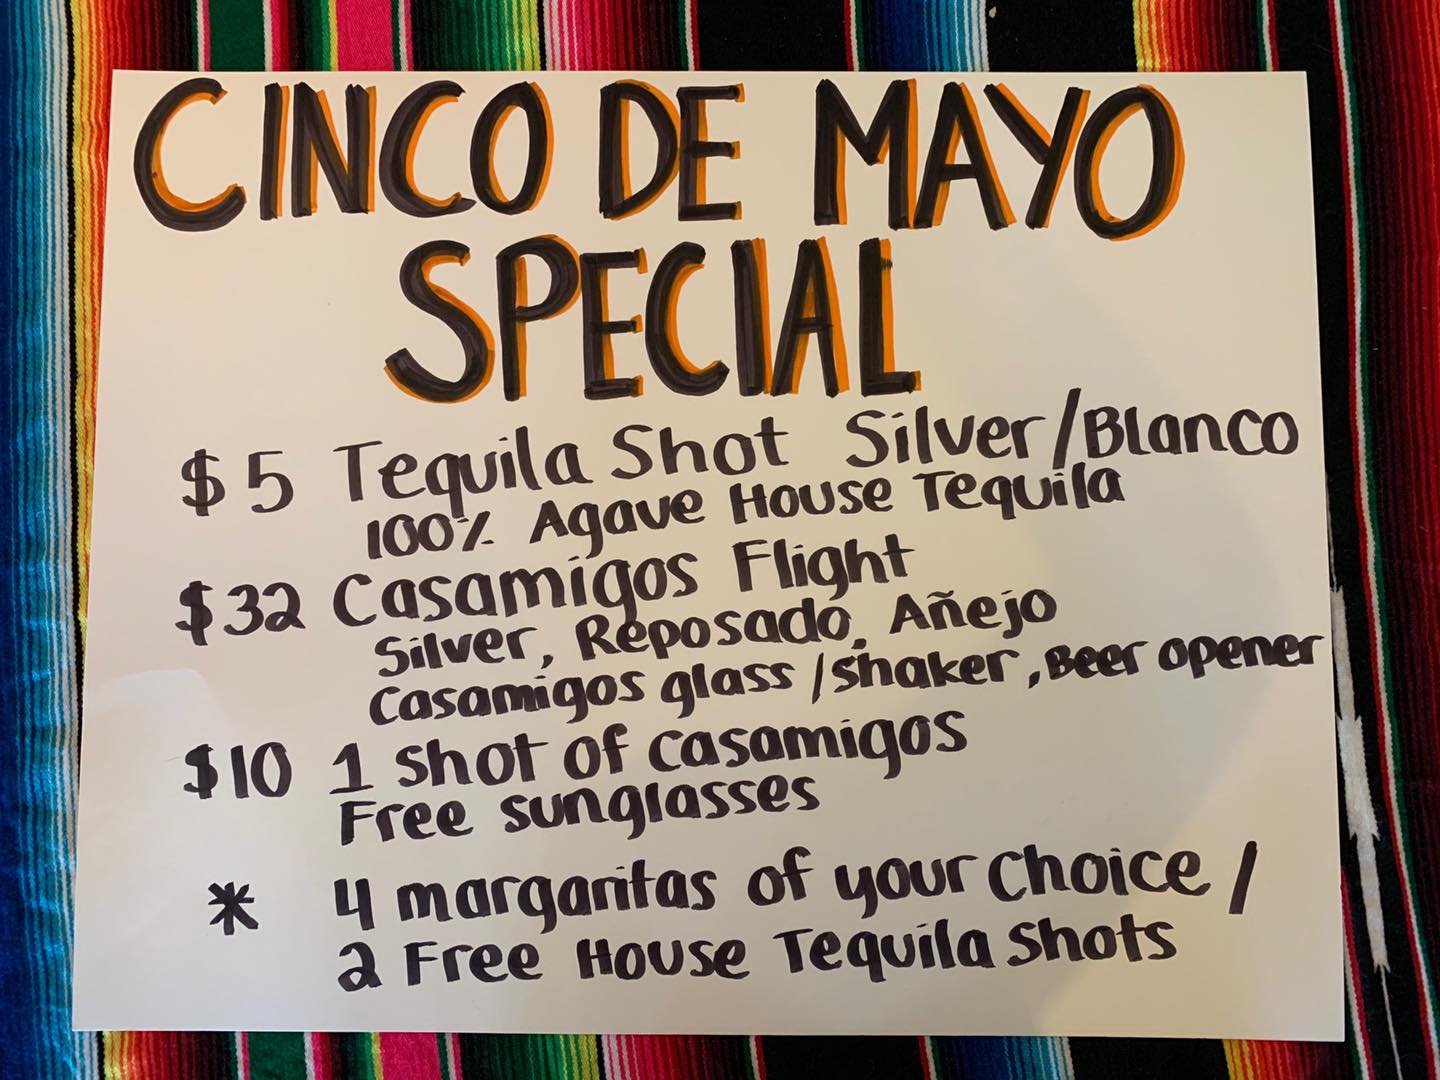 CINCO DE MAYO
SPECIAL
$5 Tequila Shot Silver/Blanco
100% Agave House Tequila
$32 Casamigos Flight
Silver, Reposado, Añejo
Casamigos glass /shaker, Beer opener
$10 1 shot of casamigos
Free sunglasses
* 4 margaritas of your choice /
2 Free House Tequila Shots